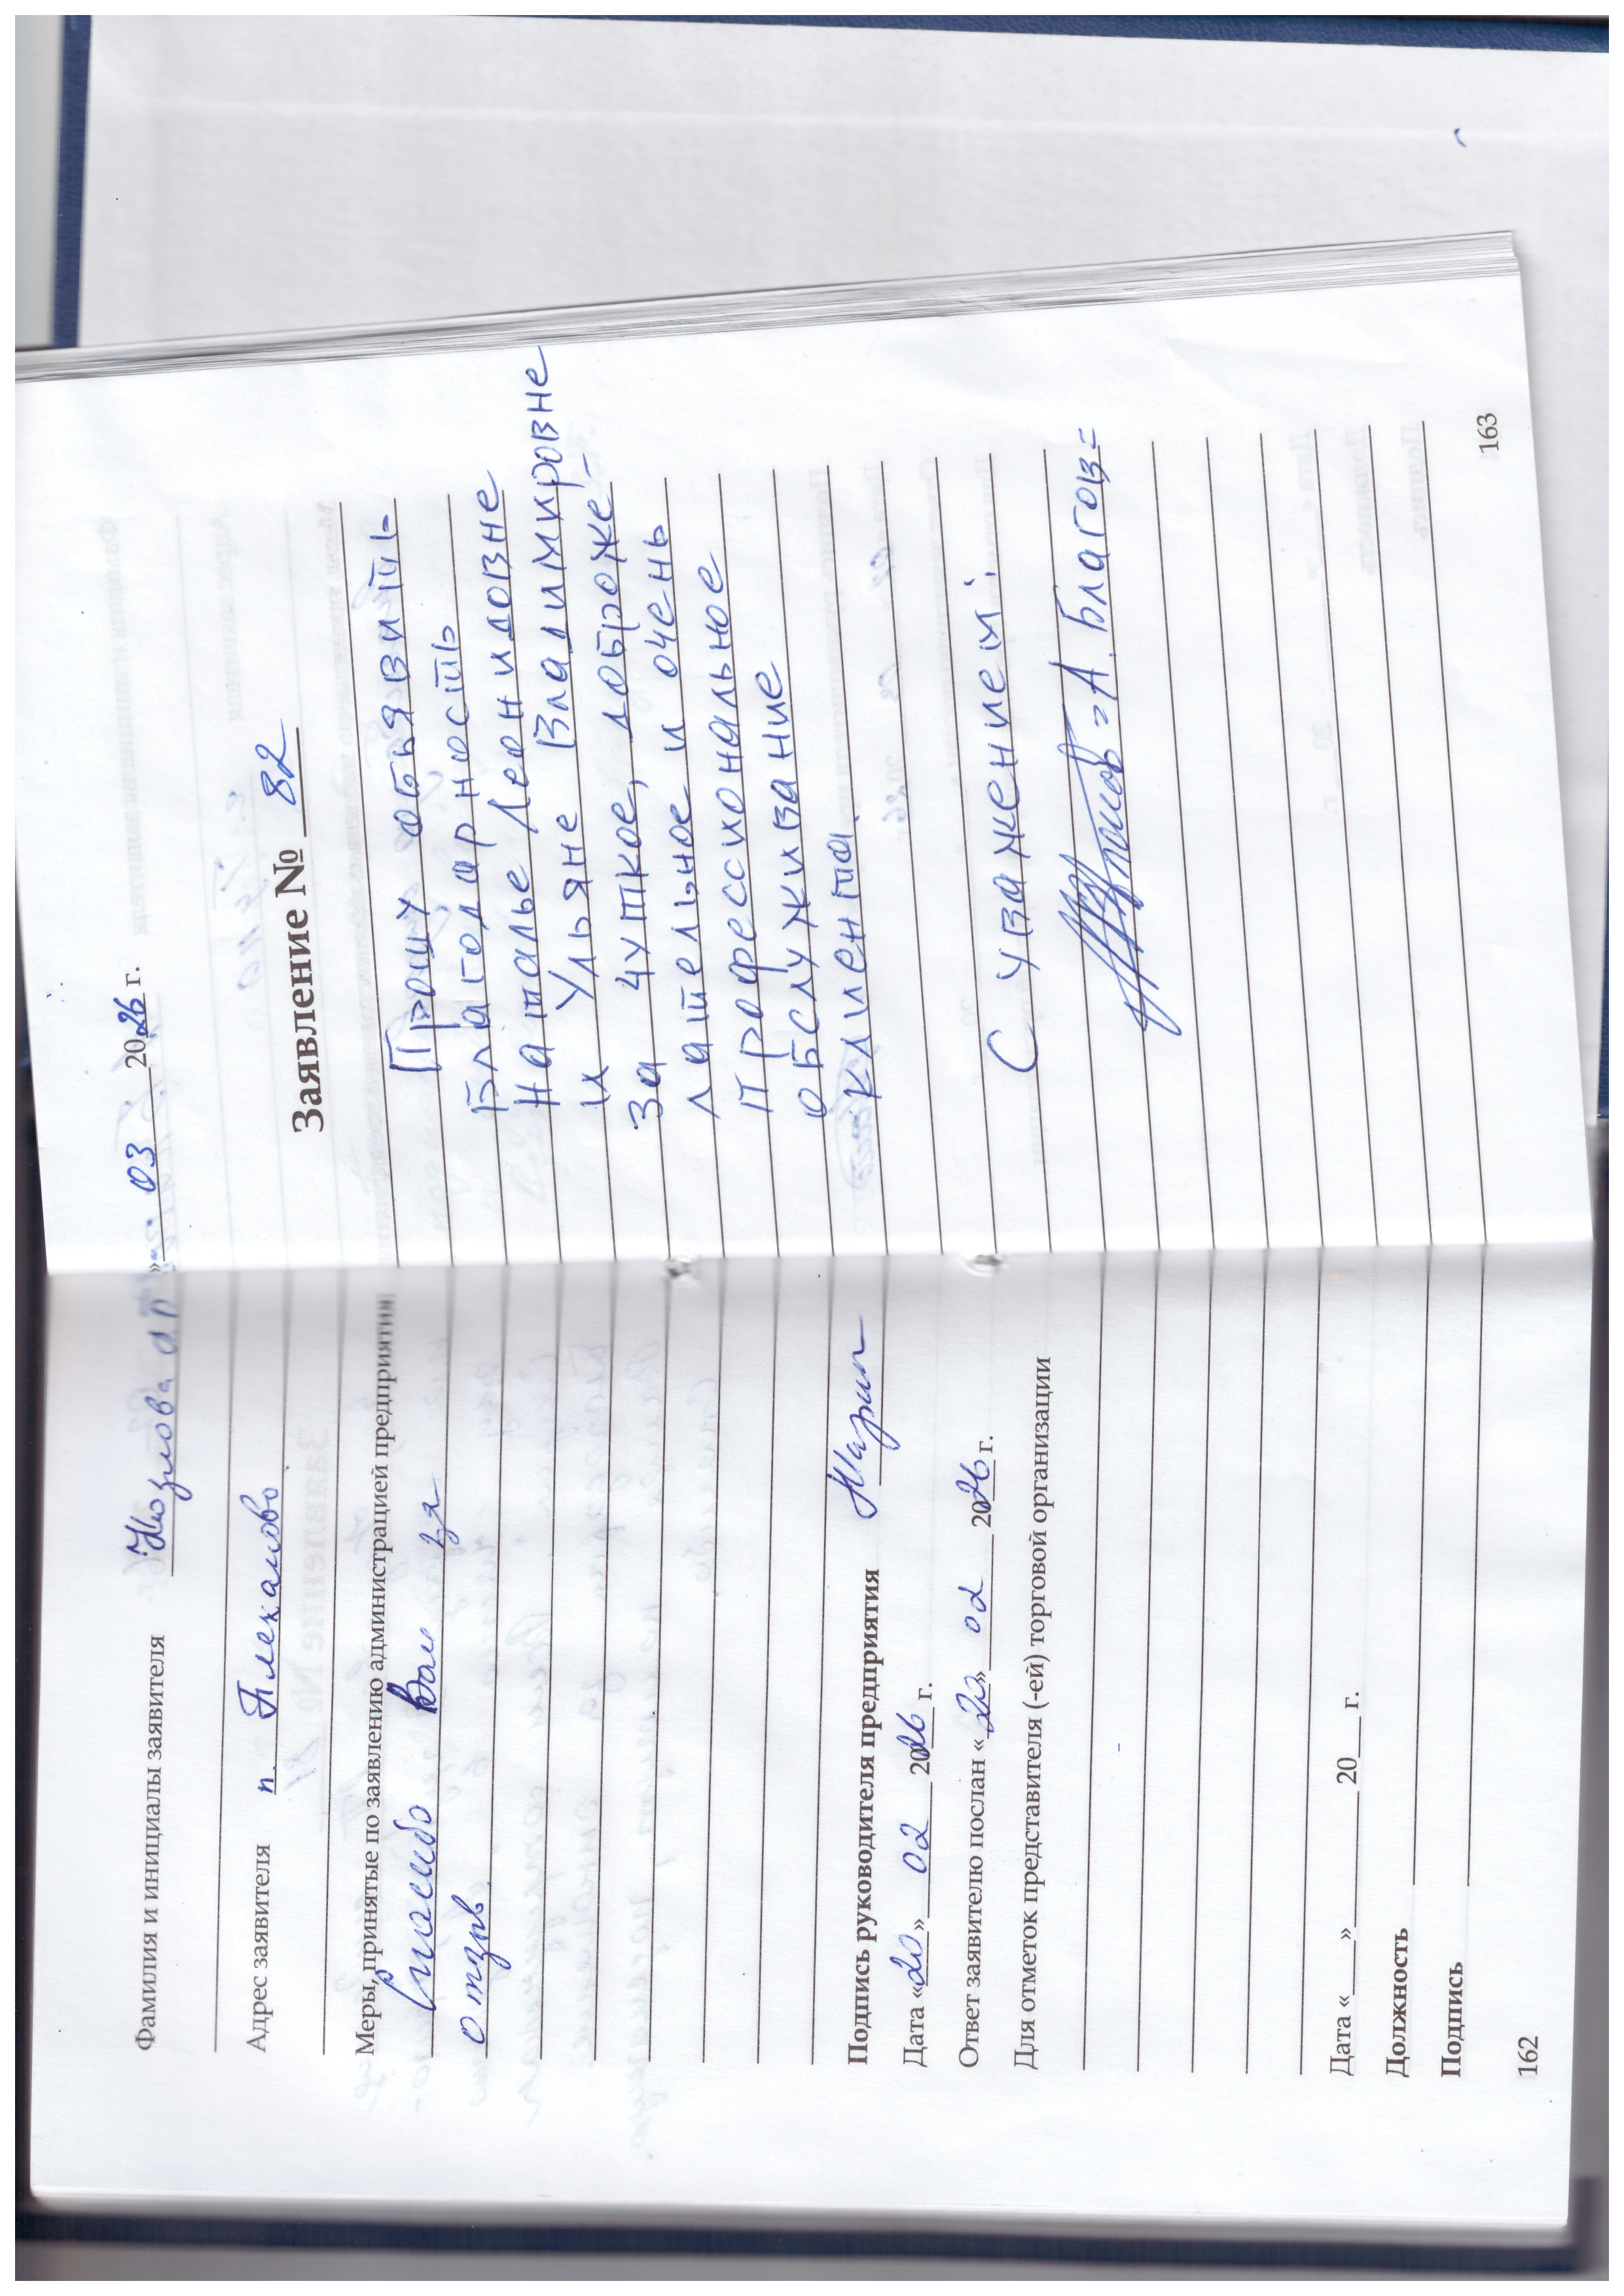 Фамилия и инициалы заявителя
Адрес заявителя п. Плеханово
Меры, принятые по заявлению администрацией предприятия
Спасибо Вам за
отзыв
Подпись руководителя предприятия
Дата «20» 02 2026 г.
Ответ заявителю послан «20» 02 2026 г.
Для отметок представителя (-ей) торговой организации
Дата «____»________ 20___ г.
Должность
Подпись
162
» 03 2026 г.
Заявление № 82
Прошу объявить
благодарность
Наталье Леонидовне
и Ульяне Владимировне
за чуткое, доброже-
лательное и очень
профессиональное
обслуживание
клиента.
С уважением:
=А. Благов=
163